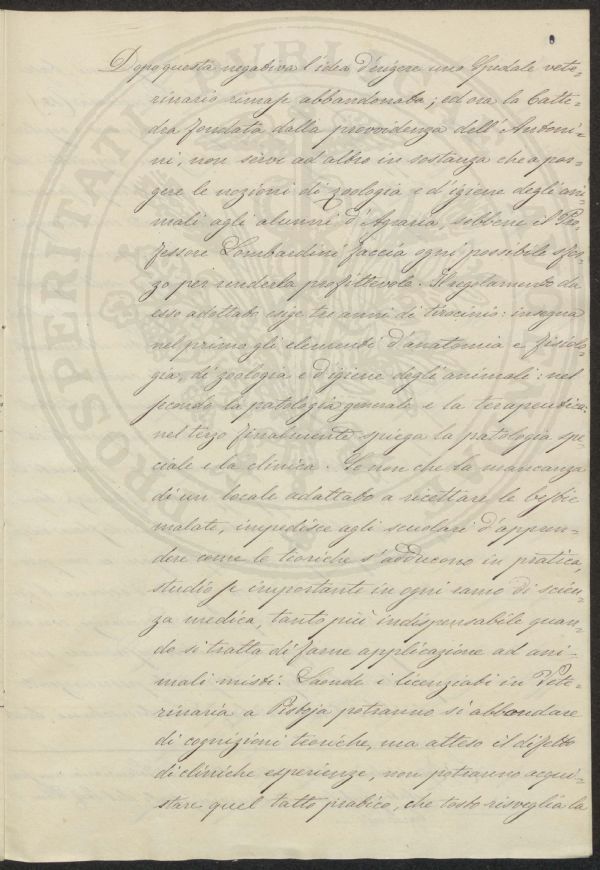 Dopo questa negativa l'idea d'erigere uno Spedale vete-
rinario rimase abbandonata; ed ora la Catte-
dra fondata dalla provvidenza dell'Antomi-
ni, non servì ad altro in sostanza che a por-
gere le nozioni di zoologia e d'igiene degli ani-
mali agli alunni d'Agraria, sebbene il Pro-
fessore Lombardini faccia ogni possibile sfor-
zo per renderla profittevole. Il regolamento da
esso adottato esige tre anni di tirocinio: insegna
nel primo gli elementi d'anatomia e fisiolo-
gia, di zoologia e d'igiene degli animali: nel
secondo la patologia generale e la terapeutica:
nel terzo finalmente spiega la patologia spe-
ciale e la clinica. Se non che la mancanza
di un locale adattato a ricettare le bestie
malate, impedisce agli scuolari d'appren-
dere come le teoriche s'adducono in pratica,
studio sì importante in ogni ramo di scien-
za medica, tanto più indispensabile quan-
do si tratta di farne applicazione ad ani-
mali misti. Laonde i licenziati in Vete-
rinaria a Pistoja potranno sì abbondare
di cognizioni teoriche, ma atteso il difetto
di cliniche esperienze, non potranno acqui-
stare quel tatto pratico, che tosto risveglia la
PROSPERITATI PUBLICAE